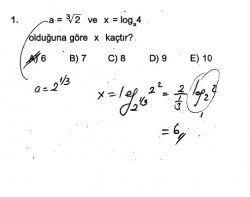 1. a = ∛2 ve x = logₐ4
olduğuna göre x kaçtır?
A) 6 B) 7 C) 8 D) 9 E) 10
a = 2^{1/3}
x = log_{2^{1/3}} 2² = \frac{2}{\frac{1}{3}} log₂ 2
= 6//